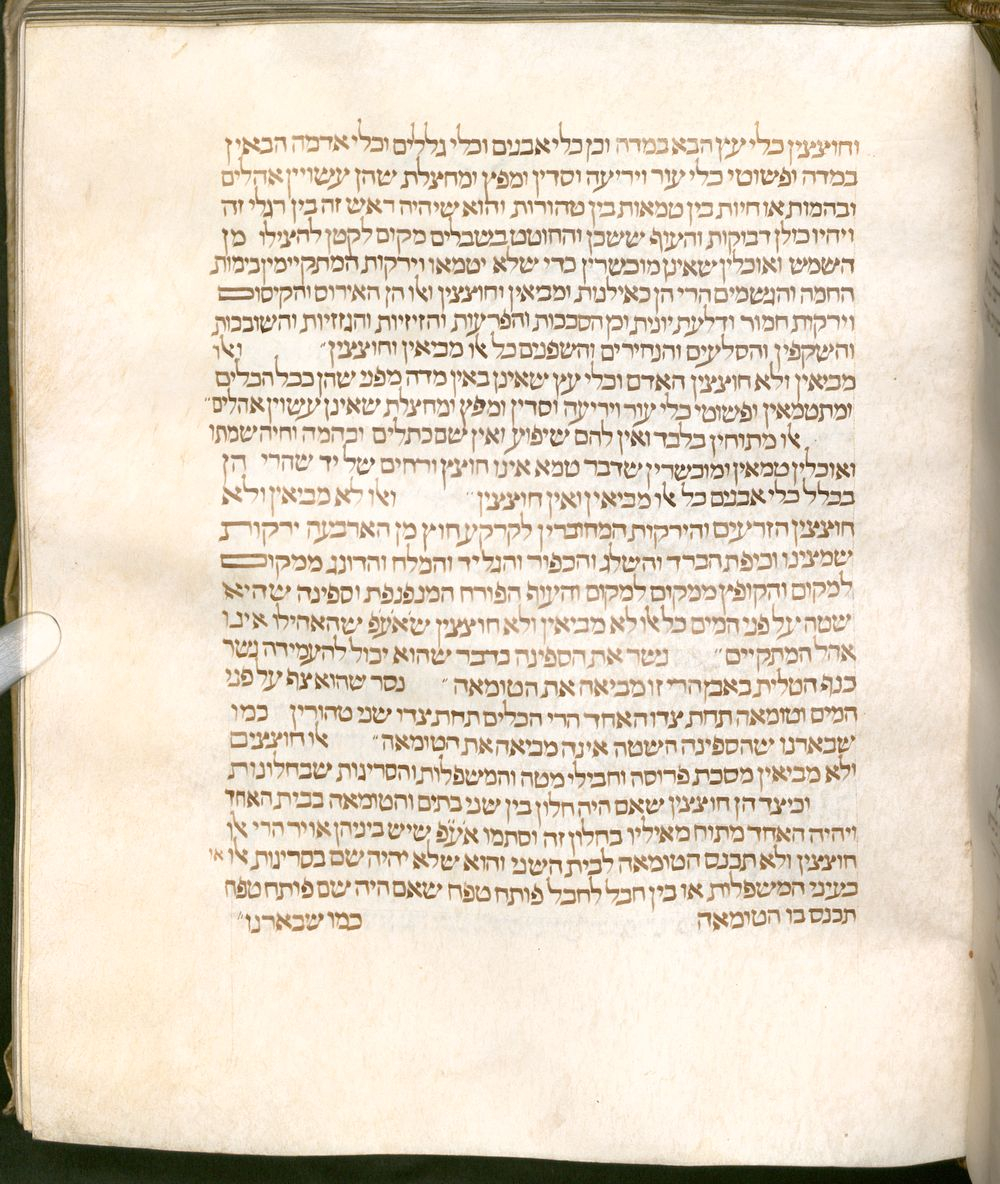 וחוצצין כלי עץ הבא במדה וכן כלי אבנים וכלי גללים וכלי אדמה הבאין
במדה ופשוטי כלי עור ויריעה וסדין ומפץ ומחצלת שהן עשויין אהלים
ובהמות או חיות בין טמאות בין טהורות והוא שיהיה ראש זה בין רגלי זה
ויהיו כולן דבוקות והעוף ששכן והחוטט בשבלים מקום לקטן להצילו מן
השמש ואוכלין שאינן מוכשרין כדי שלא יטמאו וירקות המתקיימין בימות
החמה והגשמים הרי הן כאילנות ומביאין וחוצצין ואלו הן האירוס והקיסוס
וירקות חמור ודלעת יונית וכן הסככות והפרעות והזיזיות והגזזיות והשובכות
והשקפין והסלעים והנחירים והשפנים כל אלו מביאין וחוצצין״ ואלו
מביאין ולא חוצצין האדם וכלי עץ שאינן באין מדה מפני שהן ככל הכלים
ומתטמאין ופשוטי כלי עור ויריעה וסדין ומפץ ומחצלת שאינן עשוין אהלים״
אלו מתוחין בלבד ואין להם שיפוע ואין שם כתלים ובהמה וחיה שמתו
ואוכלין טמאין ומוכשרין שדבר טמא אינו חוצץ ורחים של יד שהרי הן
בכלל כלי אבנים כל אלו מביאין ואין חוצצין״ ואלו לא מביאין ולא
חוצצין הזרעים והירקות המחוברין לקרקע חוץ מן הארבעה ירקות
שמצינו וכיפת הברד והשלג והכפור והגליד והמלח והדולג ממקום
למקום והקופץ ממקום למקום והעוף הפורח המנפנפת וספינה שהיא
שטה על פני המים כל אלו לא מביאין ולא חוצצין שאע״פ שהאהילו אינו
אהל המתקיים״ קשר את הספינה בדבר שהוא יכול להעמידה קשר
כנף הטלית באבן הרי זו מביאה את הטומאה״ נסר שהוא צף על פני
המים וטומאה תחת צדו האחד הרי הכלים תחת צדו שני טהורין כמו
שבארנו שהספינה השטה אינה מביאה את הטומאה״ אלו חוצצים
ולא מביאין מסכת פרוסה וחבילי מטה והמשפלות והסריגות שבחלונות
וכיצד הן חוצצין שאם היה חלון בין שני בתים והטומאה בבית האחד
ויהיה האחד מתוח מאיליו בחלון זה וסתמו אע״פ שיש ביניהן אויר הרי אלו
חוצצין ולא תכנס הטומאה לבית השני והוא שלא יהיה שם בסריגות או
בעיני המשפלות או בין חבל לחבל פותח טפח שאם היה שם פותח טפח
תכנס בו הטומאה כמו שבארנו״